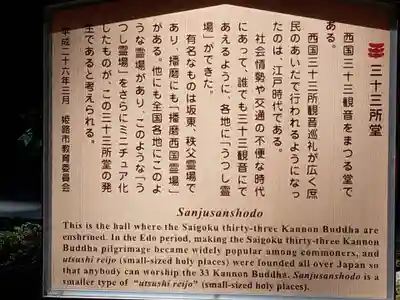 三十三所堂
西国三十三観音をまつる堂で
ある。
西国三十三所観音巡礼が広く庶
民のあいだで行われるようになっ
たのは、江戸時代である。
社会情勢や交通の不便な時代
にあって、誰でも三十三観音にで
あえるように、各地に「うつし霊
場」ができた。
有名なものは坂東、秩父霊場で
あり、播磨にも「播磨西国霊場」
がある。他にも全国各地にこのよ
うな霊場があり、このような「う
つし霊場」をさらにミニチュア化
したものが、この三十三所堂の発
生であると考えられる。
平成二十六年三月 姫路市教育委員会
Sanjusanshodo
This is the hall where the Saigoku thirty-three Kannon Buddha are
enshrined. In the Edo period, making the Saigoku thirty-three Kannon
Buddha pilgrimage became widely popular among commoners, and
utsushi reijo (small-sized holy places) were founded all over Japan so
that anybody can worship the 33 Kannon Buddha. Sanjusanshodo is a
smaller type of "utsushi reijo" (small-sized holy places).